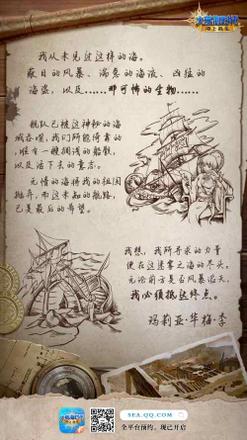 大航海时代
海上霸主
我从未见过这样的海。
蔽日的风暴、湍急的海流、凶猛的
海盗，以及……那可怖的生物……
舰队已被这神秘的海
域吞噬，我们所能倚靠的
唯有一艘搁浅的船骸，
以及活下去的意志。
无情的海将我的祖国
抛弃，而这未知的航路，
已是最后的希望。
我想，我所寻求的力量
便在这迷雾之海的尽头。
无论前方是否风暴滔天，
我必须抵达终点。
玛莉亚·华梅·李
SEA.QQ.COM
全平台预约，现已开启